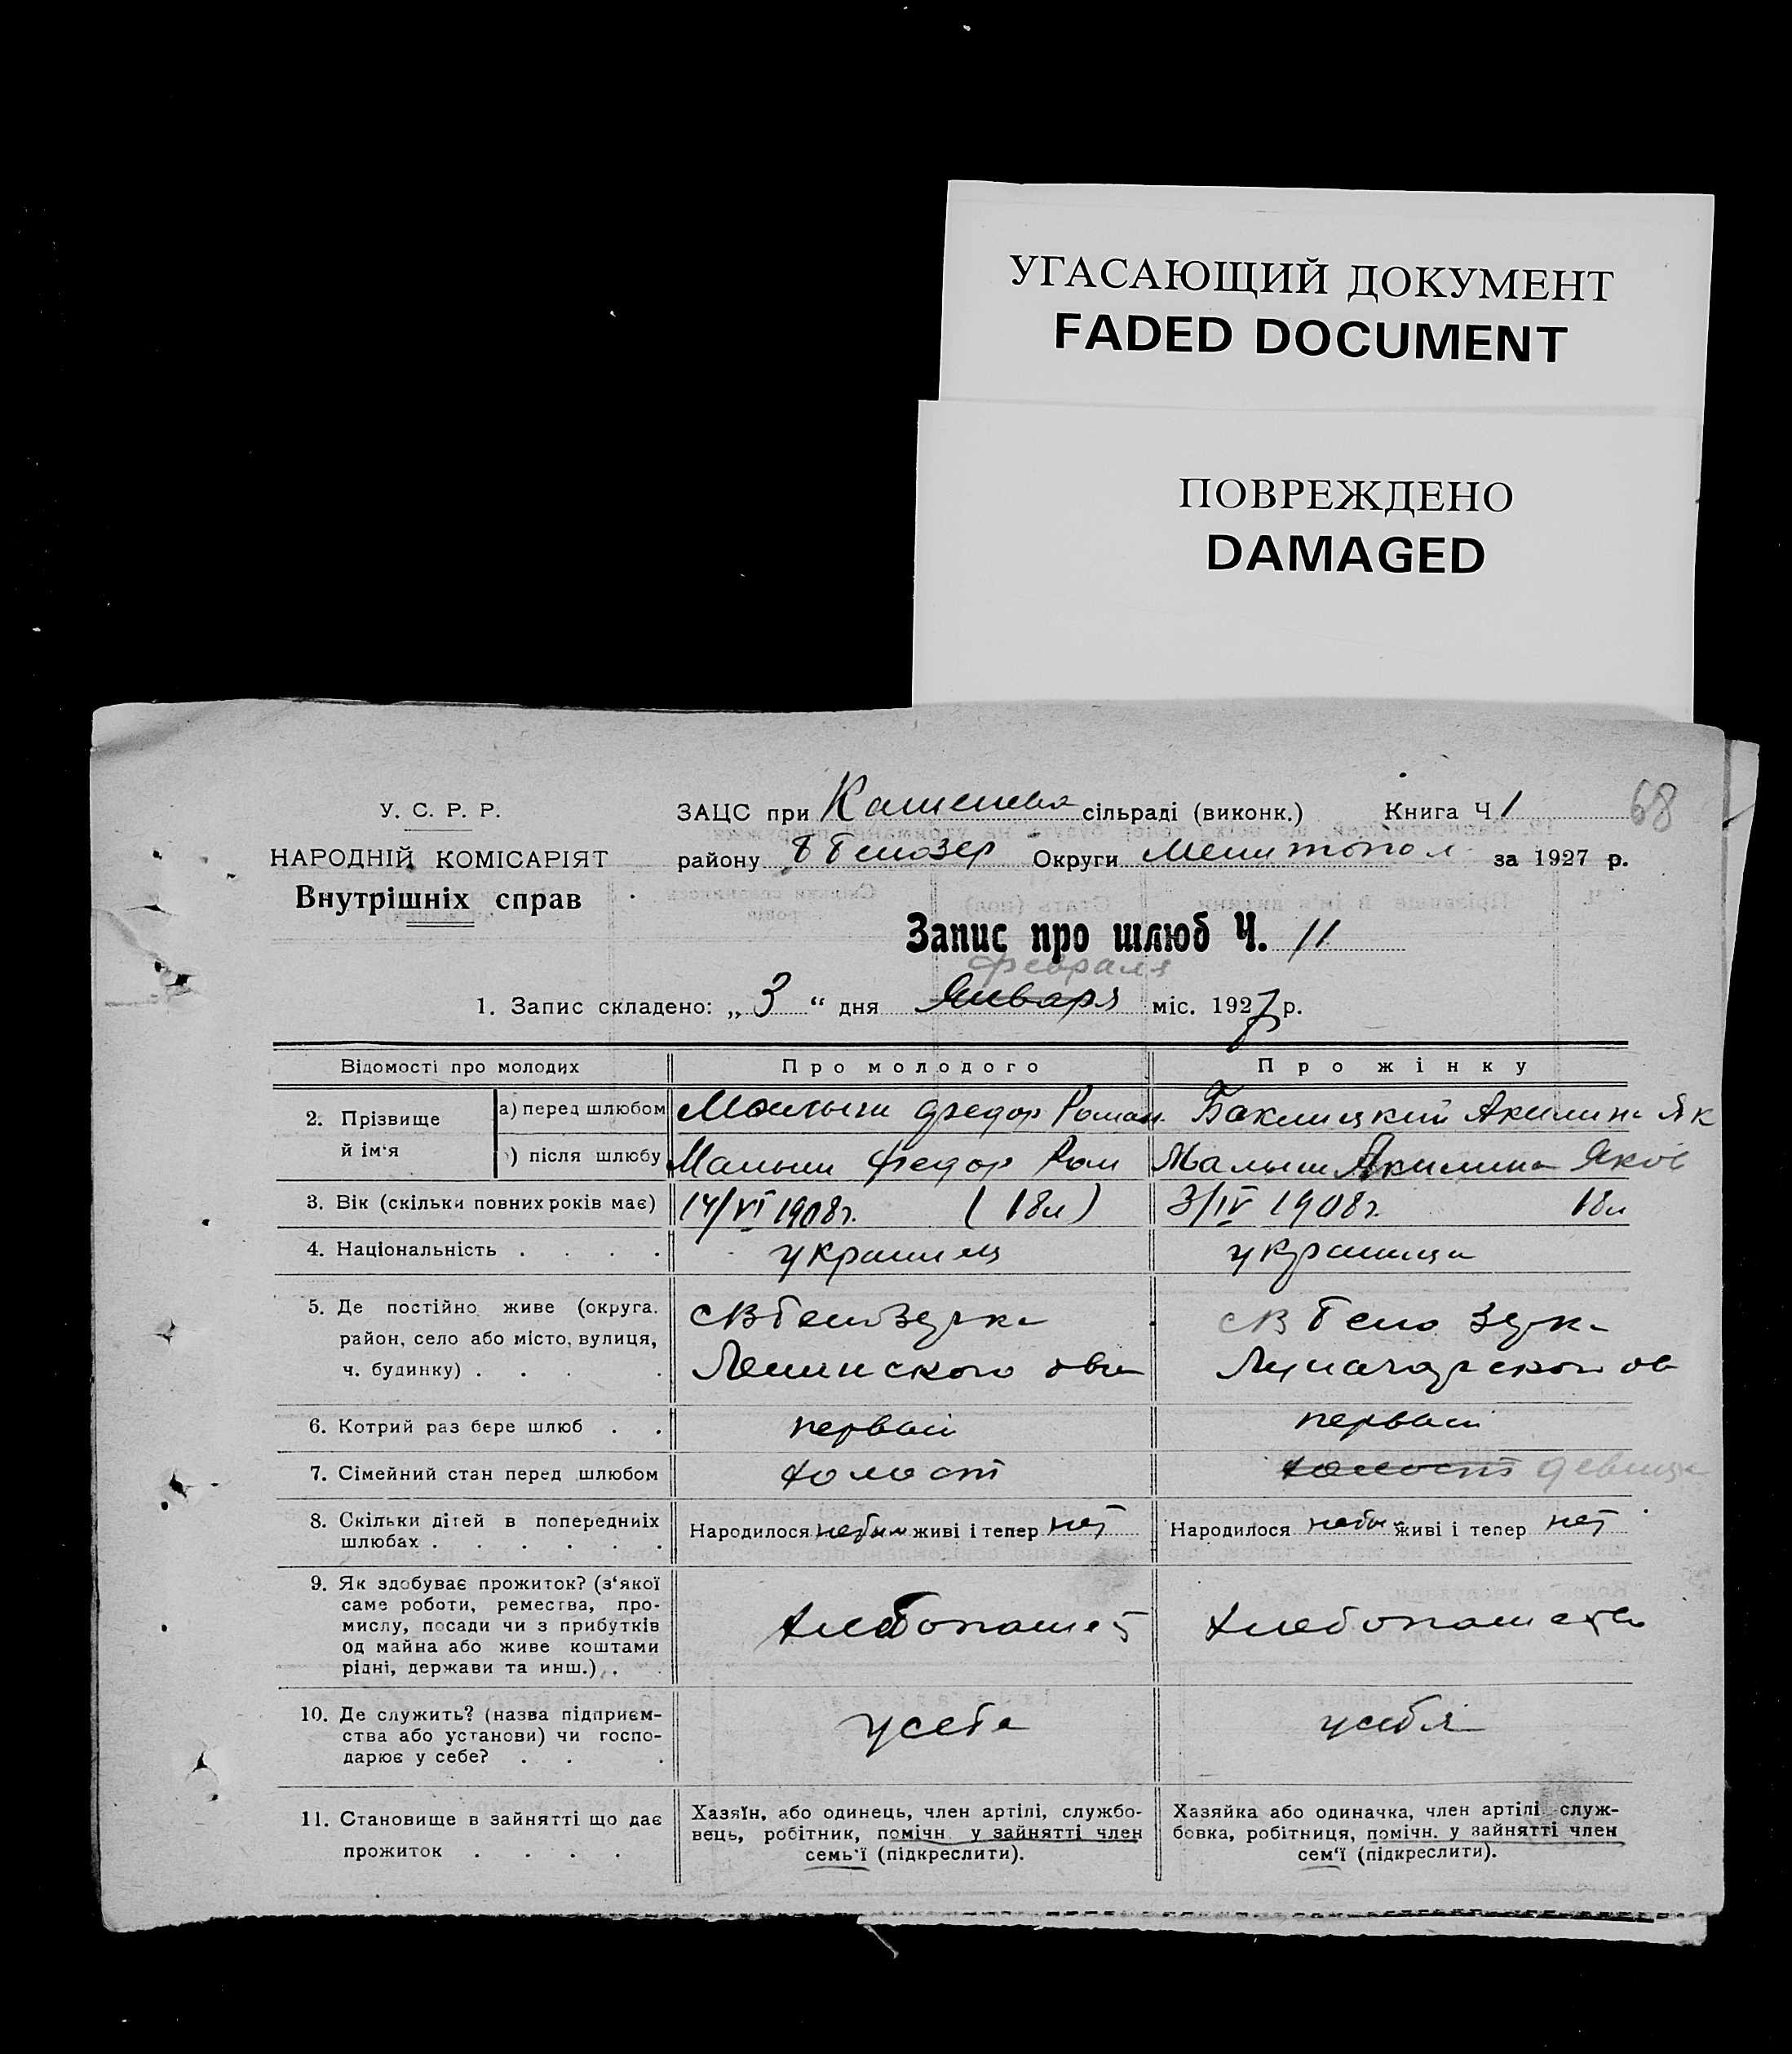 УГАСАЮЩИЙ ДОКУМЕНТ
FADED DOCUMENT
ПОВРЕЖДЕНО
DAMAGED
68
У. С. Р. Р.
НАРОДНІЙ КОМІСАРІЯТ
Внутрішніх справ
ЗАЦС при сільраді (виконк.) Книга Ч 1
району Округи Мелитопол за 1927 р.
Запис про шлюб Ч. 11
февраля
1. Запис складено: „ 3 “ дня Января міс. 1927 р.
Відомості про молодих
Про молодого
Про жінку
2. Прізвище й ім‘я
а) перед шлюбом
Малыш Федор Роман
Баклицкий Акилина Як
) після шлюбу
Малыш Федор Ром
Малыш Акилина Яков
3. Вік (скільки повних років має)
14/VI 1908 г. (18 л)
3/IV 1908 г. 18 л
4. Національність . . . .
украинец
украинца
5. Де постійно живе (округа.
район, село або місто, вулиця,
ч. будинку) . . . .
Ленинского
Луначарского
6. Котрий раз бере шлюб . .
первый
первый
7. Сімейний стан перед шлюбом
холост
холост девица
8. Скільки дітей в попередніх
шлюбах . . . . . .
Народилося небыл живі і тепер нет
Народилося небы живі і тепер нет
9. Як здобуває прожиток? (з‘якої
саме роботи, ремества, про-
мислу, посади чи з прибутків
од майна або живе коштами
рідні, держави та инш.) .
хлебопашет
10. Де служить? (назва підприєм-
ства або установи) чи госпо-
дарює у себе? . . .
у себя
у себя
11. Становище в зайнятті що дає
прожиток . . . .
Хазяїн, або одинець, член артілі, службо-
вець, робітник, помічн. у зайнятті член
семь‘ї (підкреслити).
Хазяйка або одиначка, член артілі служ-
бовка, робітниця, помічн. у зайнятті член
сем‘ї (підкреслити).